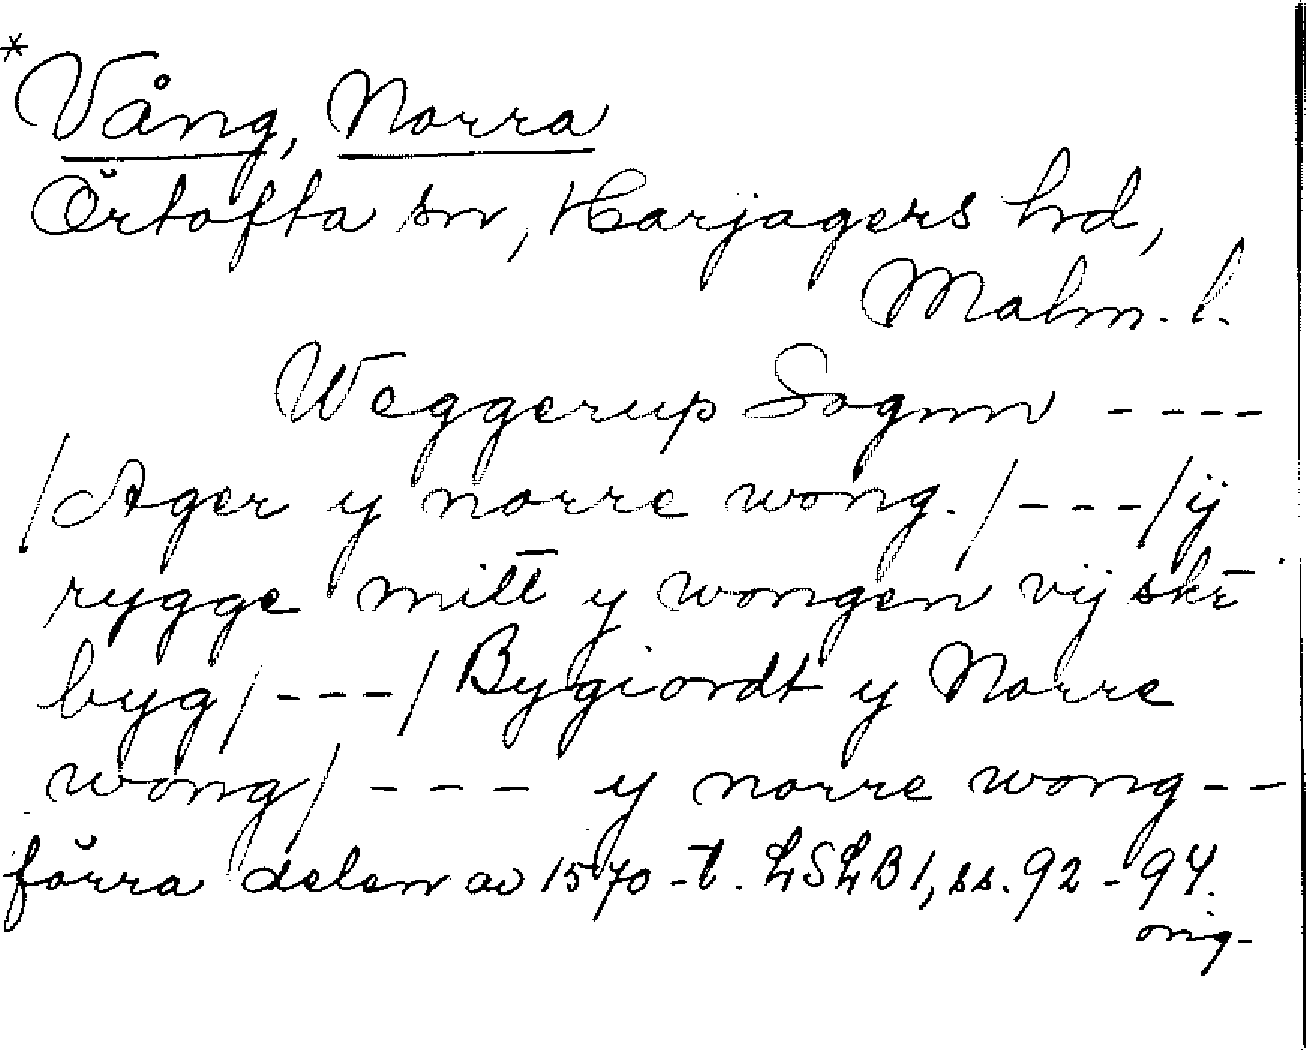 *Vång, Norra
Örtofta sn, Harjagers hd,
Malm. l.
Weggerup Sognn ----
/Ager y norre wong./---/ij
rygge mitt y wongen vij skr̄
byg/---/Bygiordt y Norre
wong/--- y norre wong--
förra delen av 1570-t. LSLB1, ss. 92-94.
orig-